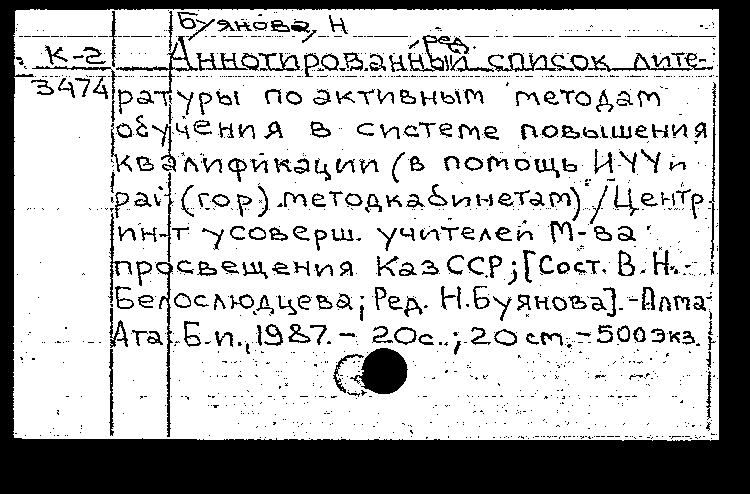 Буянова, Н
ред.
К-2 Аннотированный список лите-
3474 ратуры по активным методам
обучения в системе повышения
квалификации (в помощь ИУУ и
рай (гор) методкабинетам) / Центр.
ин-т усоверш. учителей М-ва
просвещения КазССР; [Сост. В.Н.
Белослюдцева; Ред. Н.Буянова]. - Алма
Ата: Б.и., 1987. - 20с..; 20 см. - 500 экз.